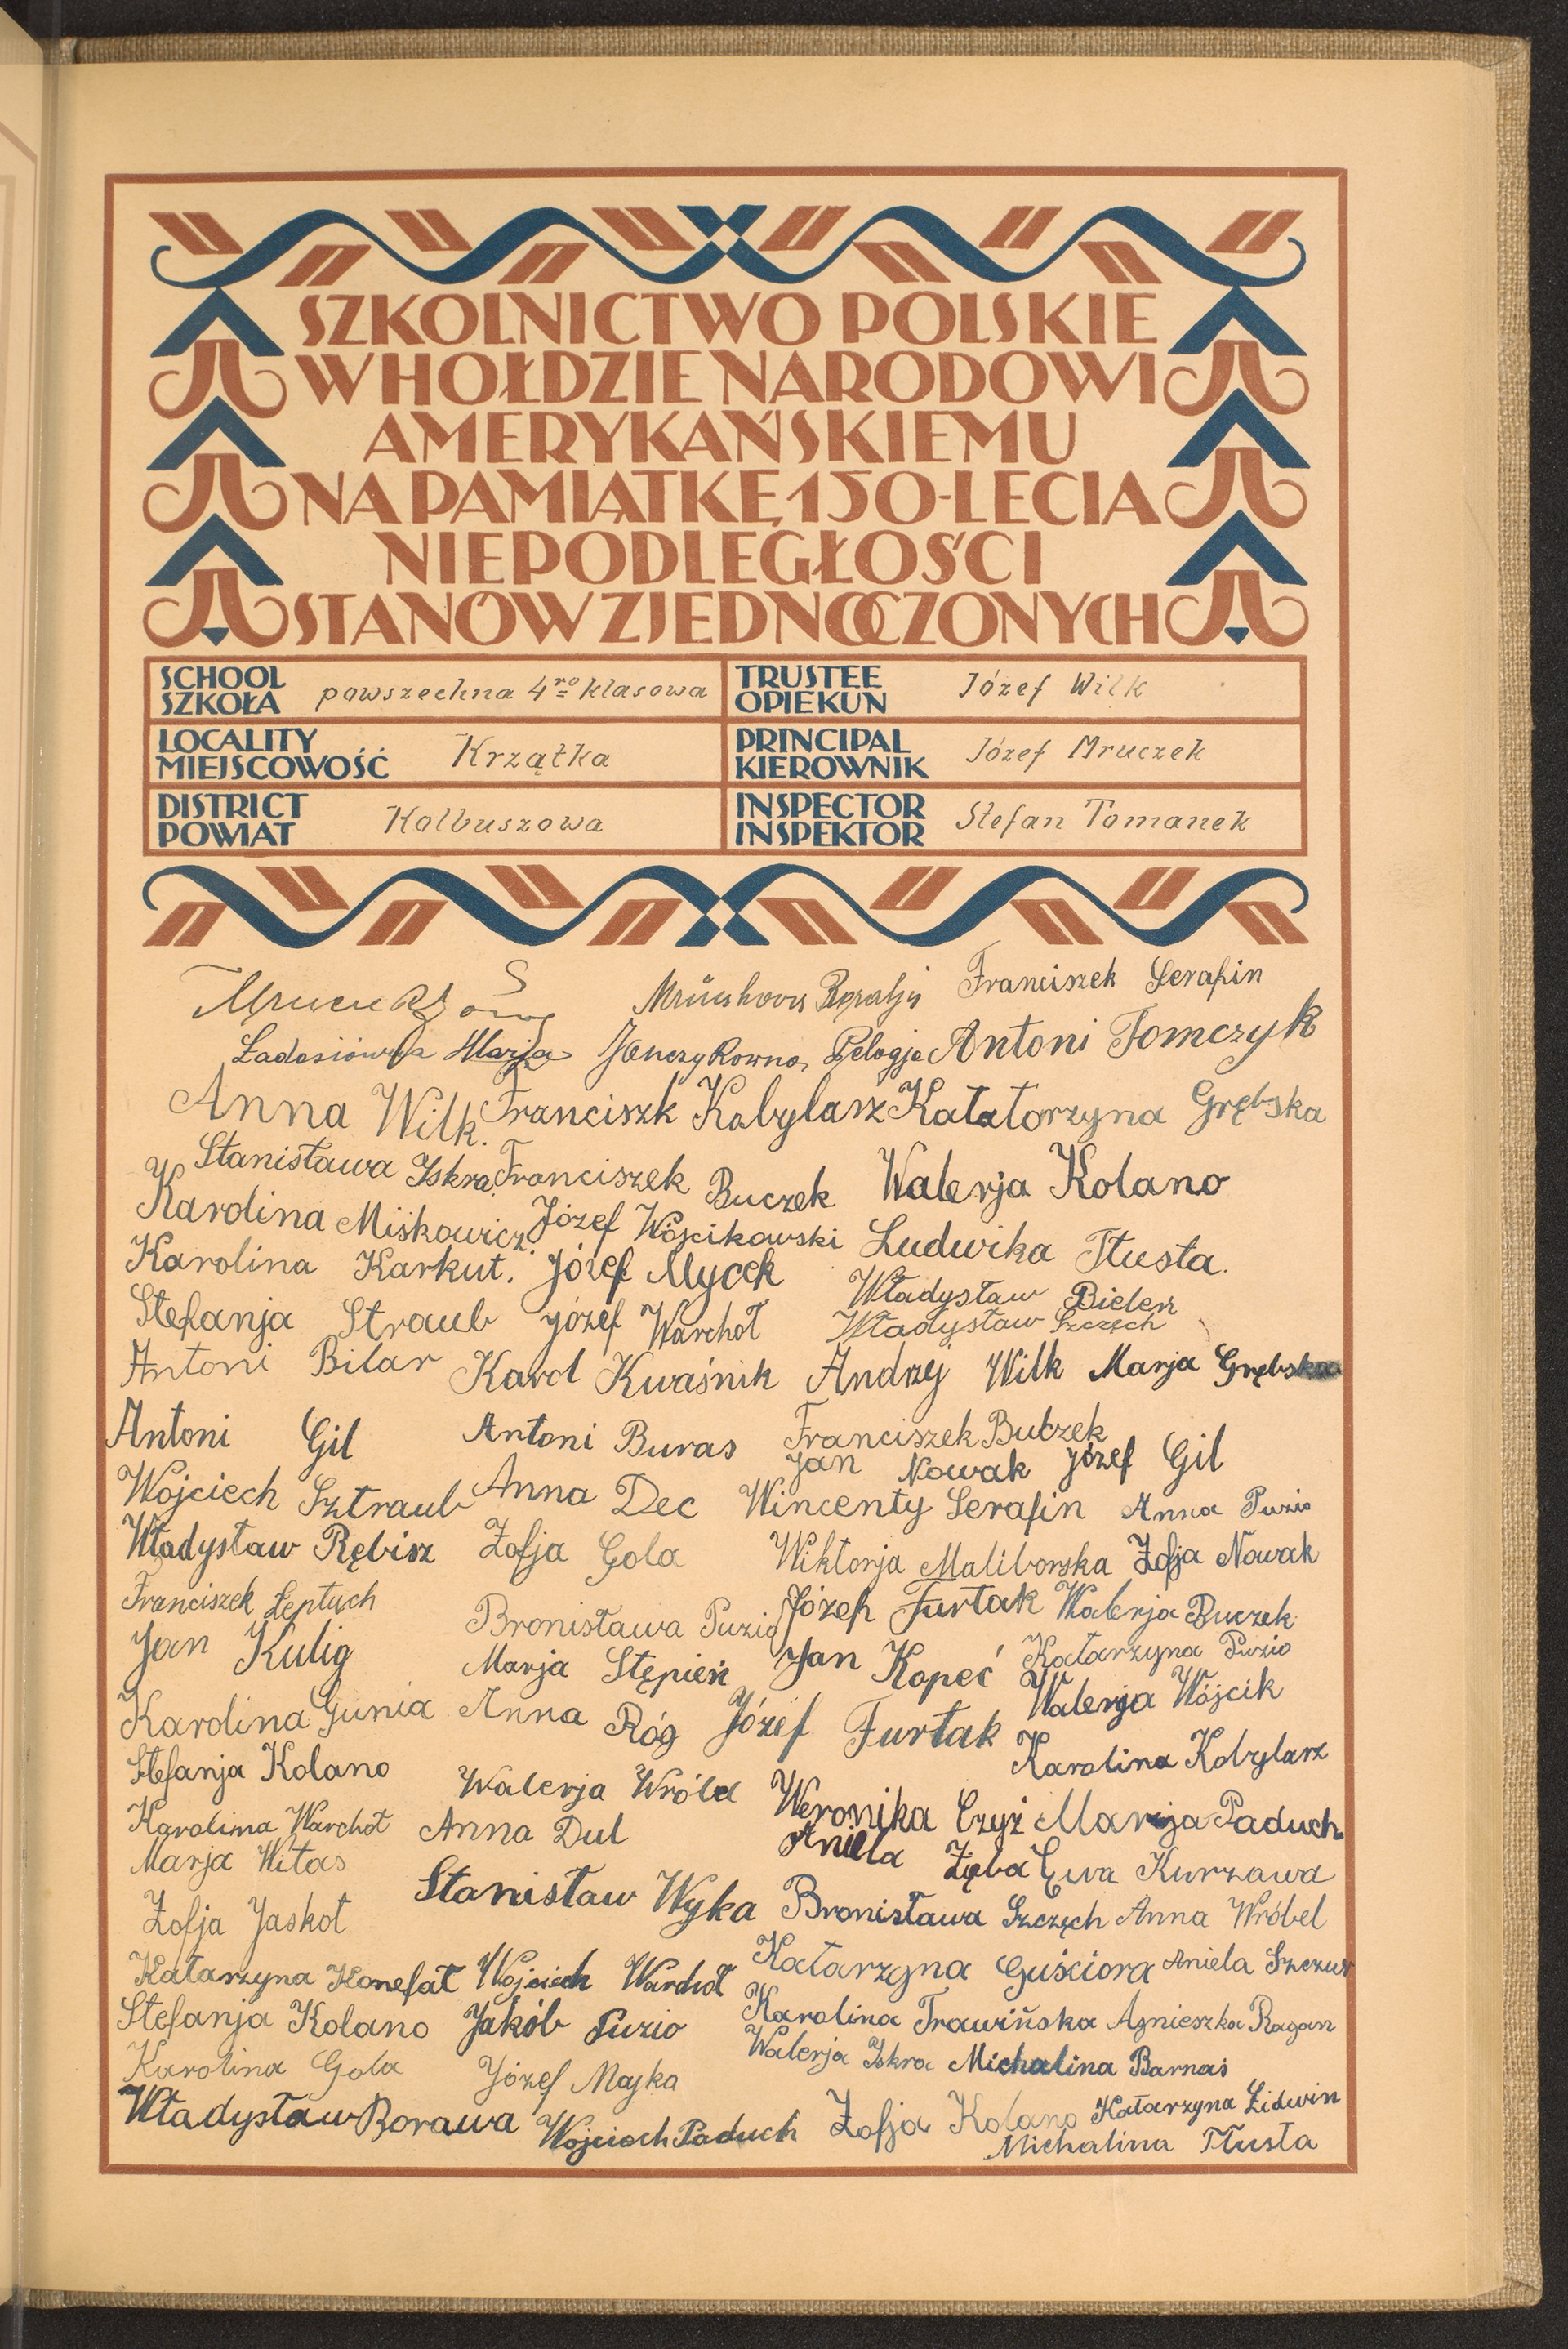 SZKOLNICTWO POLSKIE
W HOŁDZIE NARODOWI
AMERYKAŃSKIEMU
NA PAMIĄTKĘ 150-LECIA
NIEPODLEGŁOŚCI
STANÓW ZJEDNOCZONYCH
SCHOOL
SZKOŁA powszechna 4ro klasowa
TRUSTEE
OPIEKUN Józef Wilk
LOCALITY
MIEJSCOWOŚĆ Krzątka
PRINCIPAL
KIEROWNIK Józef Mruczek
DISTRICT
POWIAT Kolbuszowa
INSPECTOR
INSPEKTOR Stefan Tomanek
Franciszek Serafin
Marja Pelagja Antoni Tomczyk
Anna Wilk. Franciszk Kobylarz Katatorzyna Grębska
Stanisława Iskra Franciszek Buczek Walerja Kolano
Karolina Miśkowicz. Józef Wójcikowski Ludwika Tłusta.
Karolina Karkut. Józef Mycek
Władysław Bieleń
Stefanja Straub Józef Warchoł Władysław Szczęch
Antoni Bilar Karol Kwaśnik Andrzej Wilk Marja Grębska
Antoni Gil Antoni Buras Franciszek Buczek
Jan Nowak Józef Gil
Wojciech Sztraub Anna Dec Wincenty Serafin Anna Puzio
Władysław Rębisz Zofja Gola Wiktorja Maliborska Zofja Nowak
Franciszek Łeptuch Bronisława Puzio Józef Furtak Walerja Buczek
Jan Kulig Marja Stępień Jan Kopeć Katarzyna Puzio
Karolina Gunia Anna Róg Józef Furtak Walerja Wójcik
Stefanja Kolano Walerja Wróbel Karolina Kobylarz
Karolina Warchoł Anna Dul Weronika Czyż Marja Paduch
Marja Witas Aniela Zęba Ewa Kurzawa
Zofja Jaskot Stanisław Wyka Bronisława Szczęch Anna Wróbel
Katarzyna Konefał Wojciech Warchoł Katarzyna Guściora Aniela Szczur
Stefanja Kolano Jakób Puzio Karolina Trawińska Agnieszka Ragan
Karolina Gola Józef Majka Walerja Iskra Michalina Barnaś
Władysław Borawa Wojciech Paduch Zofja Kolano Katarzyna Zidwin
Michalina Tłusta